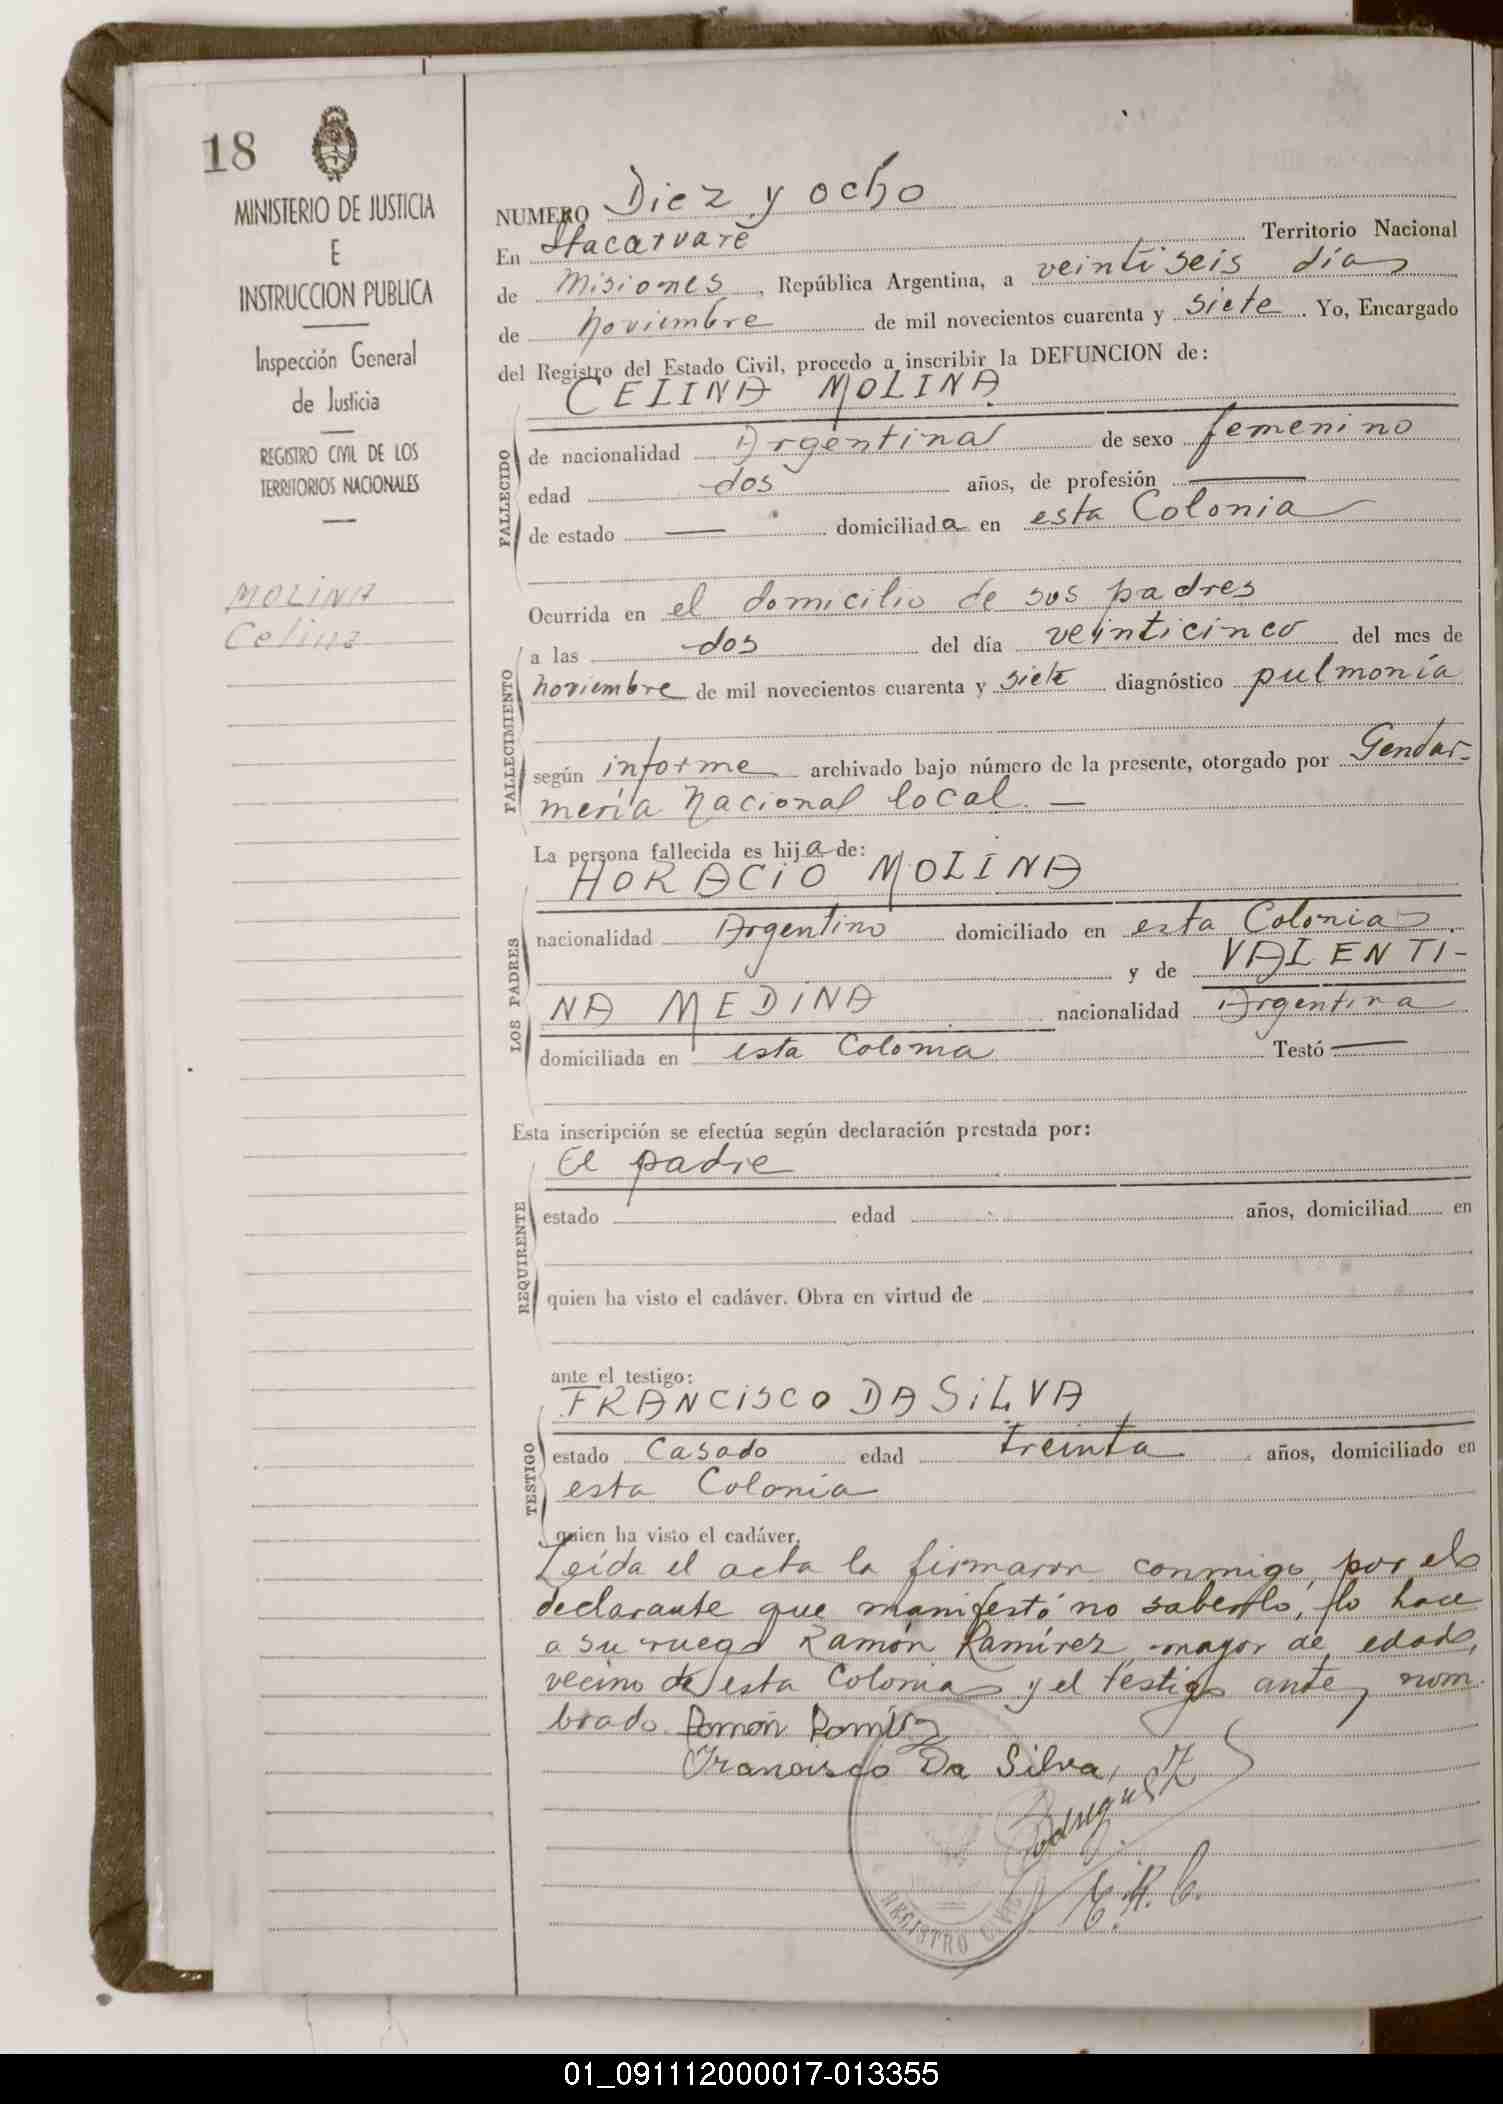 18
MINISTERIO DE JUSTICIA
E
INSTRUCCION PUBLICA
Inspección General
de Justicia
REGISTRO CIVIL DE LOS
TERRITORIOS NACIONALES
MOLINA
Celina
NUMERO Diez y ocho
En Itacaruaré Territorio Nacional
de Misiones, República Argentina, a veintiseis dias
de noviembre de mil novecientos cuarenta y siete. Yo, Encargado
del Registro del Estado Civil, procedo a inscribir la DEFUNCION de:
CELINA MOLINA
FALLECIDO
de nacionalidad Argentina de sexo femenino
edad dos años, de profesión —
de estado — domiciliada en esta Colonia
FALLECIMIENTO
Ocurrida en el domicilio de sus padres
a las dos del día veinticinco del mes de
noviembre de mil novecientos cuarenta y siete diagnóstico pulmonía
según informe archivado bajo número de la presente, otorgado por Gendar-
mería Nacional local. —
La persona fallecida es hija de:
LOS PADRES
HORACIO MOLINA
nacionalidad Argentino domiciliado en esta Colonia
y de VALENTI-
NA MEDINA nacionalidad Argentina
domiciliada en esta Colonia Testó —
Esta inscripción se efectúa según declaración prestada por:
REQUIRENTE
El padre
estado edad años, domiciliad en
quien ha visto el cadáver. Obra en virtud de
ante el testigo:
TESTIGO
FRANCISCO DA SILVA
estado Casado edad treinta años, domiciliado en
esta Colonia
quien ha visto el cadáver.
Leída el acta la firmaron conmigo, por el
declarante que manifestó no saberlo, lo hace
a su ruego Ramón Ramírez mayor de edad,
vecino de esta Colonia y el testigo ante, nom-
brado. Ramón Ramírez
Francisco Da Silva,
Rodriguez
E. R. C.
REGISTRO CIVIL
01_091112000017-013355